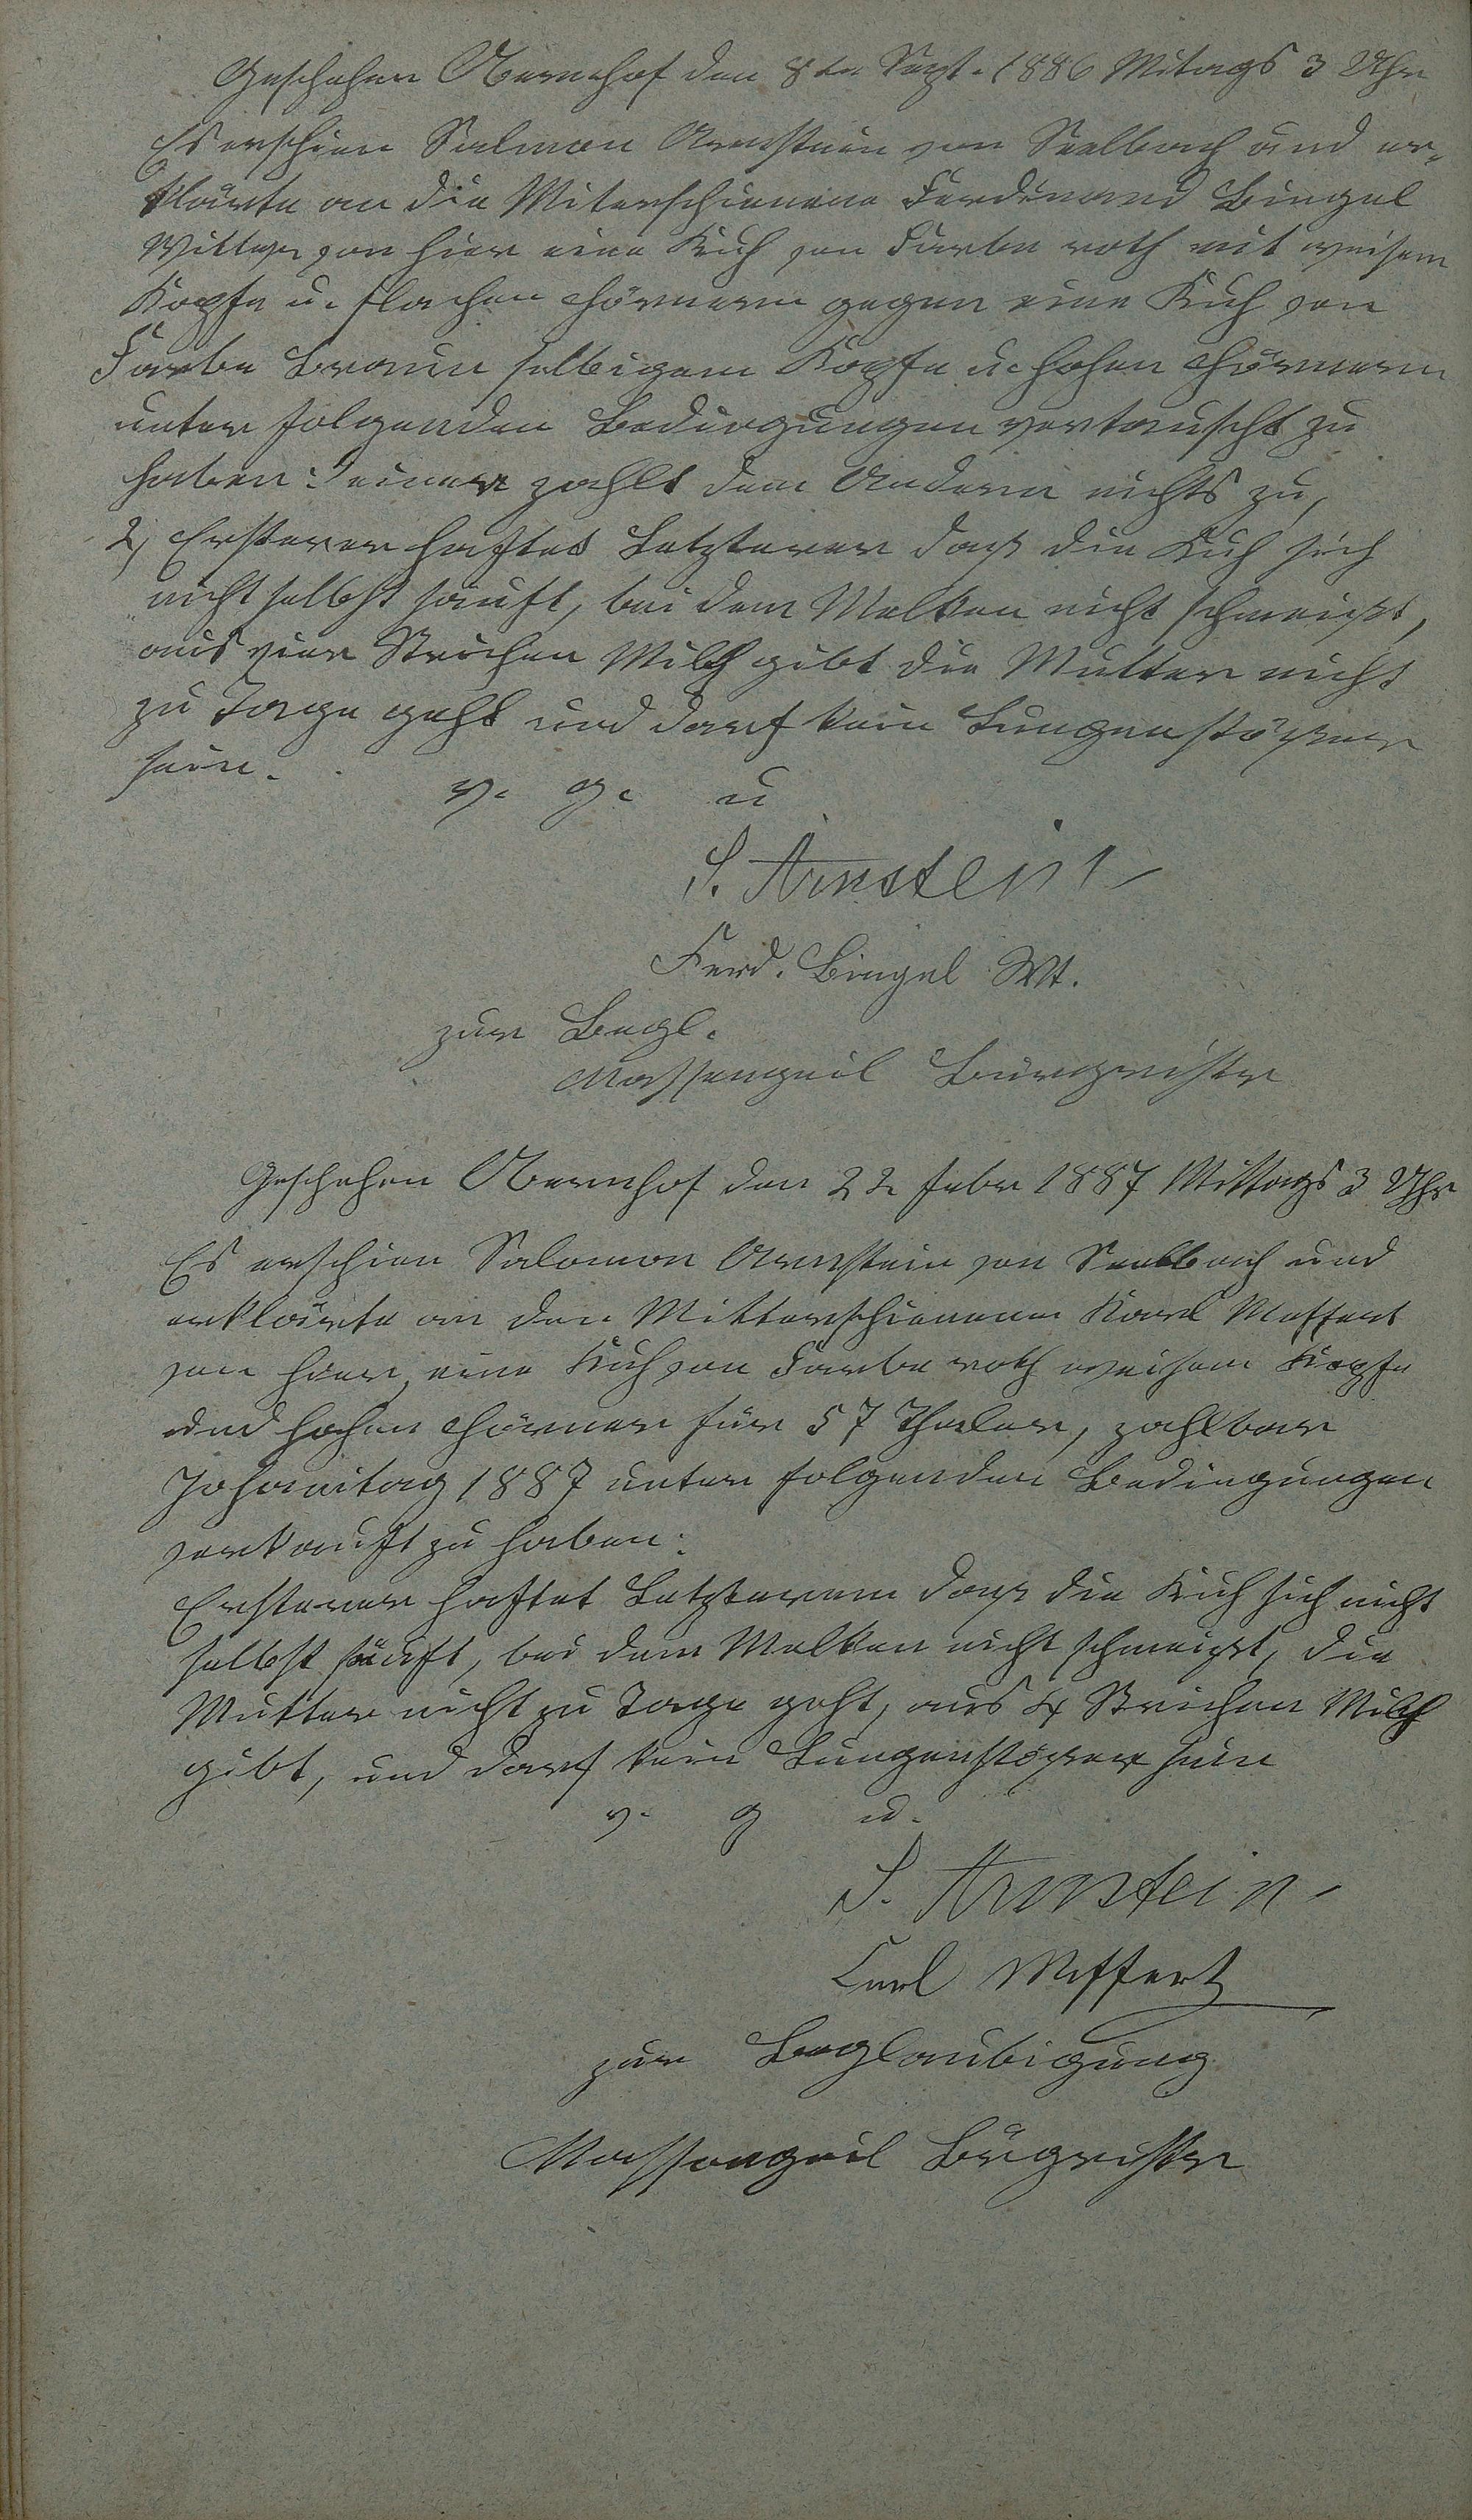 Geschehen Obernhof den 8ten Sept. 1886 Mitags 3 Uhr
Es erschien Salmon Arnstein von Seelbach und er-
klärte an die Miterschienene Ferdinand Bingel
Wittwe von hier eine Kuh von Farbe roth mit weisem
Kopfe u. flachen Hörnern gegen eine Kuh von
Farbe braun selbigem Kopfe u. hohen Hörnern
unter folgenden Bedingungen vertauscht zu
haben: einer zahlt dem Andern nichts zu,
2) Ersterer haftet Letzterer daß die Kuh sich
nicht selbst säuft, bei dem Melken nicht schmeißt,
aus vier Strichen Milch gibt die Mutter nicht
zu Tage geht und darf kein Lungenstößer
sein.
v. g. u
S. Arnstein
Ferd. Bingel Wt.
zur Begl.
Massengeil Bürgmeister
Geschehen Obernhof den 22 Febr 1887 Mittags 3 Uhr
Es erschien Salomon Arnstein von Seelbach und
erklärte an den Mitterschienenen Karl Meffert
von hier, eine Kuh von Farbe roth weisem Kopfe
und hohen Hörner für 57 Thaler, zahlbar
Johanitag 1887 unter folgenden Bedingungen
verkauft zu haben:
Ersterer haftet Letzterem daß die Kuh sich nicht
selbst säuft, bei dem Melken nicht schmeißt, die
Mutter nicht zu Tage geht, aus 4 Strichen Milch
gibt, und darf kein Lungenstößer sein
v. g u.
S. Arnstein
Carl Meffert
zur Beglaubigung
Massengeil Bürgmeister